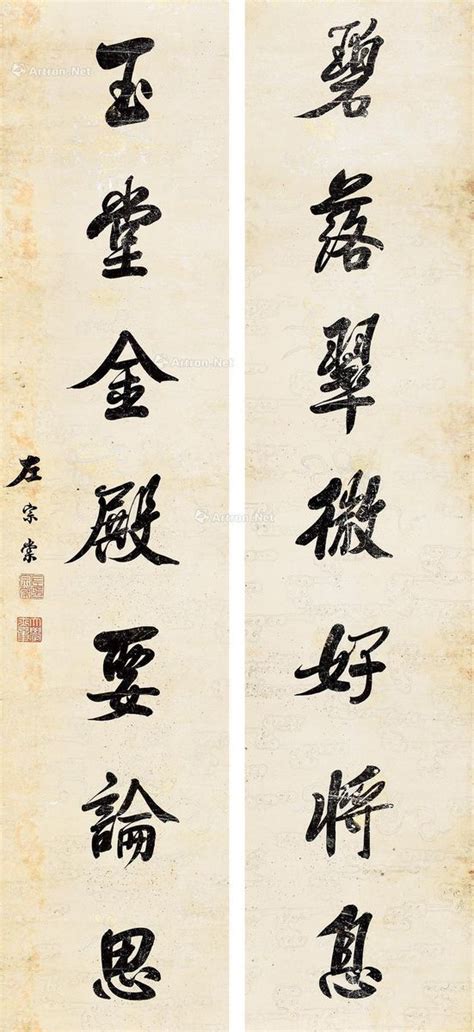 碧落翠微好将息
玉堂金殿要論思
左宗棠
Artron.Net
Artron.Net
Artron.Net